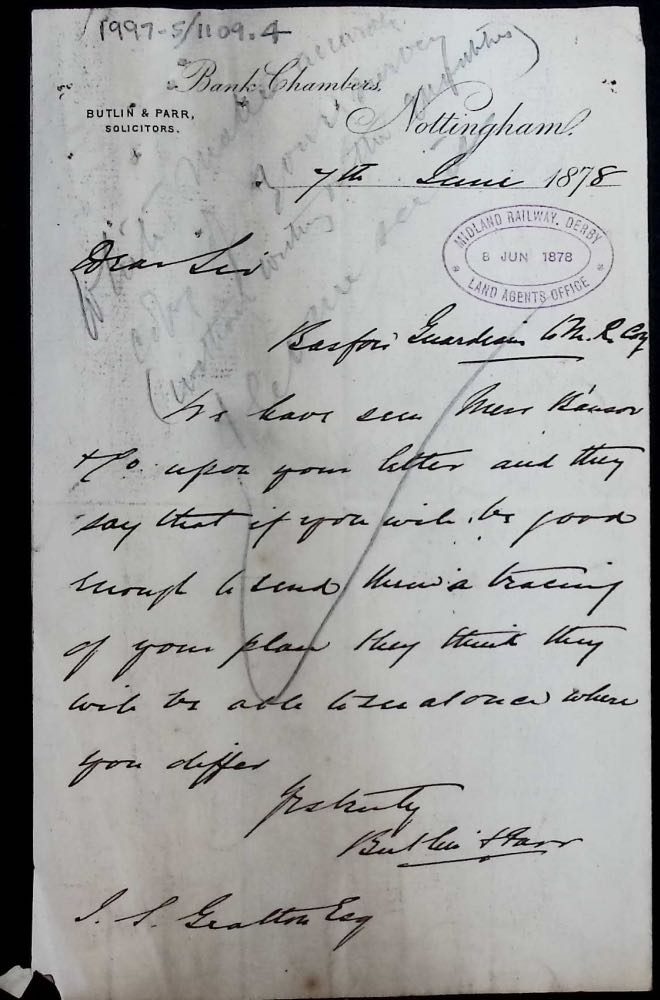 1997-5/1109.4
Bank Chambers,
BUTLIN & PARR,
SOLICITORS.
Nottingham.
7th June 1878
MIDLAND RAILWAY. DERBY
8 JUN 1878
LAND AGENTS OFFICE
Dear Sir
Basford Guardians to M. R. Coy
We have seen Messrs
& Co upon your letter and they
say that if you will be good
enough to send them a tracing
of your plan they think they
will be able to see at once where
you differ
Yrs truly
Butlin & Parr
J. S. Gratton Esq